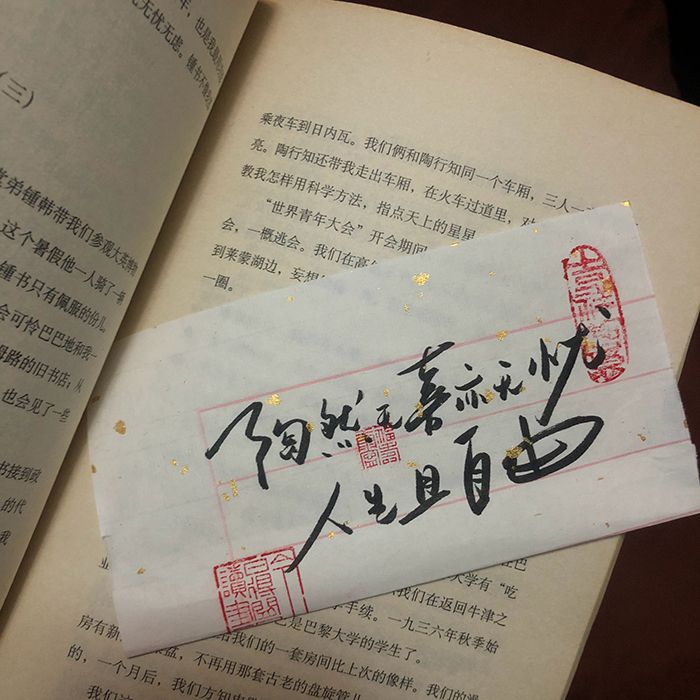 年，也是我最用功
无忧无虑。锺书不像
（三）
弟锺韩带我们参观大英博物
这个暑假他一人骑了一辆
锺书只有佩服的份儿
会可怜巴巴地和我一
姆路的旧书店；从
也会见了一些
书接到政
的代
我
乘夜车到日内瓦。我们俩和陶行知同一个车厢，三人一
亮。陶行知还带我走出车厢，在火车过道里，对
教我怎样用科学方法，指点天上的星星
“世界青年大会”开会期间
会，一概逃会。我们在高
到莱蒙湖边，妄想
一圈。
陶然无喜亦无忧
人生且自由
今日得闲读书
在巴
业
大学有“吃
我们在返回牛津之
手续。一九三六年秋季始
是巴黎大学的学生了。
房有新
给我们的一套房间比上次的像样。我们的
盆，不再用那套古老的盘旋管儿
的，一个月后，我们方知
我们